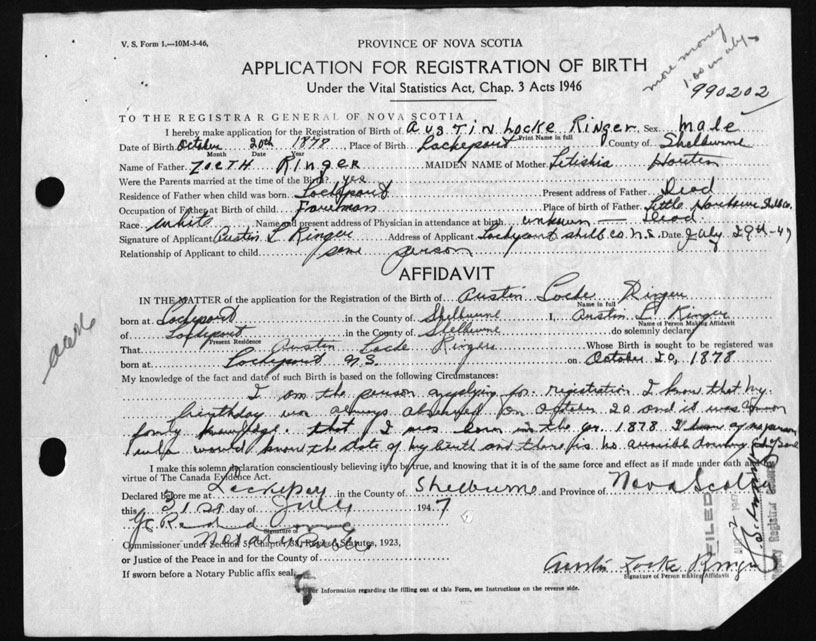 V. S. Form 1.—10M-3-46,
PROVINCE OF NOVA SCOTIA
more money
APPLICATION FOR REGISTRATION OF BIRTH
Under the Vital Statistics Act, Chap. 3 Acts 1946
990202
TO THE REGISTRAR GENERAL OF NOVA SCOTIA
I hereby make application for the Registration of Birth of AUSTIN Locke Ringer Sex male
Print Name in full
Date of Birth October 20th 1878 Place of Birth Lockeport County of Shelburne
Month Date Year
Name of Father ZOETH RINGER MAIDEN NAME of Mother Letishia
Were the Parents married at the time of the Birth? yes
Residence of Father when child was born Lockeport Present address of Father Dead
Occupation of Father at Birth of child Foreman Place of birth of Father Little Harbour Shelb Co.
Race white Name and present address of Physician in attendance at birth unknown — Dead
Signature of Applicant Austin L Ringer Address of Applicant Lockeport Shelb. Co. N.S. Date July 29th-47
Relationship of Applicant to child same person
AFFIDAVIT
IN THE MATTER of the application for the Registration of the Birth of Austin Locke Ringer
Name in full
born at Lockeport in the County of Shelburne I, Austin L Ringer
Name of Person Making Affidavit
of Lockeport in the County of Shelburne do solemnly declare
Present Residence
That Austin Locke Ringer Whose Birth is sought to be registered was
born at Lockeport N.S. on October 20, 1878
My knowledge of the fact and date of such Birth is based on the following Circumstances:
I am the person applying for registration I know that my
birthday was always observed on October 20 and it was common
family knowledge that I was born in the yr. 1878. I know of no person
who would know the date of my birth and there is no
I make this solemn declaration conscientiously believing it to be true, and knowing that it is of the same force and effect as if made under oath and by
virtue of The Canada Evidence Act.
Declared before me at Lockeport in the County of Shelburne and Province of Nova Scotia
this 31st day of July 1947
Signature of
Commissioner under Section 5, Chapter 38, Revised Statutes, 1923,
Notary Public
or Justice of the Peace in and for the County of
If sworn before a Notary Public affix seal
Austin Locke Ringer
Signature of Person making Affidavit
For information regarding the filling out of this Form, see Instructions on the reverse side.
FILED